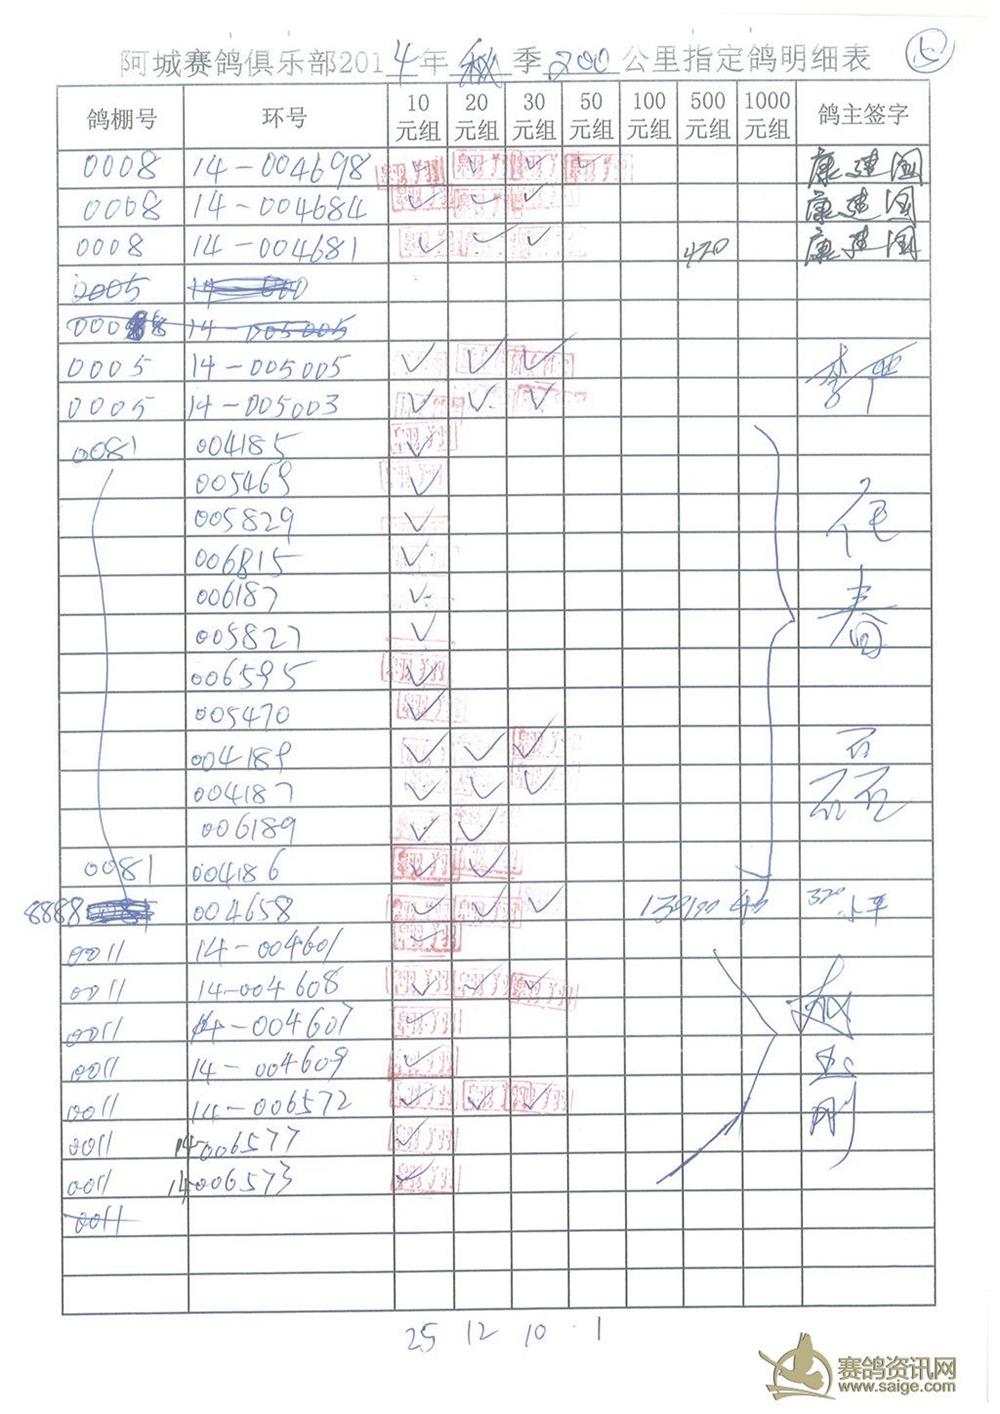 阿城赛鸽俱乐部2014年 秋 季 200 公里指定鸽明细表
鸽棚号 环号 10元组 20元组 30元组 50元组 100元组 500元组 1000元组 鸽主签字
0008 14-004698 ✓ ✓ ✓ ✓ 康建国
0008 14-004684 ✓ ✓ ✓ 康建国
0008 14-004681 ✓ ✓ ✓ 420 康建国
0005 14-000
0008 14-005005
0005 14-005005 ✓ ✓ ✓ 李严
0005 14-005003 ✓ ✓ ✓
0081 004185 ✓
005469 ✓
005829 ✓
006815 ✓
006187 ✓
005827 ✓
006595 ✓
005470 ✓
004189 ✓ ✓ ✓
004187 ✓ ✓ ✓
006189 ✓ ✓
0081 004186 ✓ ✓
8888 004658 ✓ ✓ ✓ 320 小平
0011 14-004601 ✓
0011 14-004608 ✓ ✓ ✓
0011 14-004607 ✓
0011 14-004609 ✓
0011 14-006572 ✓ ✓ ✓
0011 14-006577 ✓
0011 14-006573 ✓
0011
25 12 10 1
赛鸽资讯网
www.saige.com